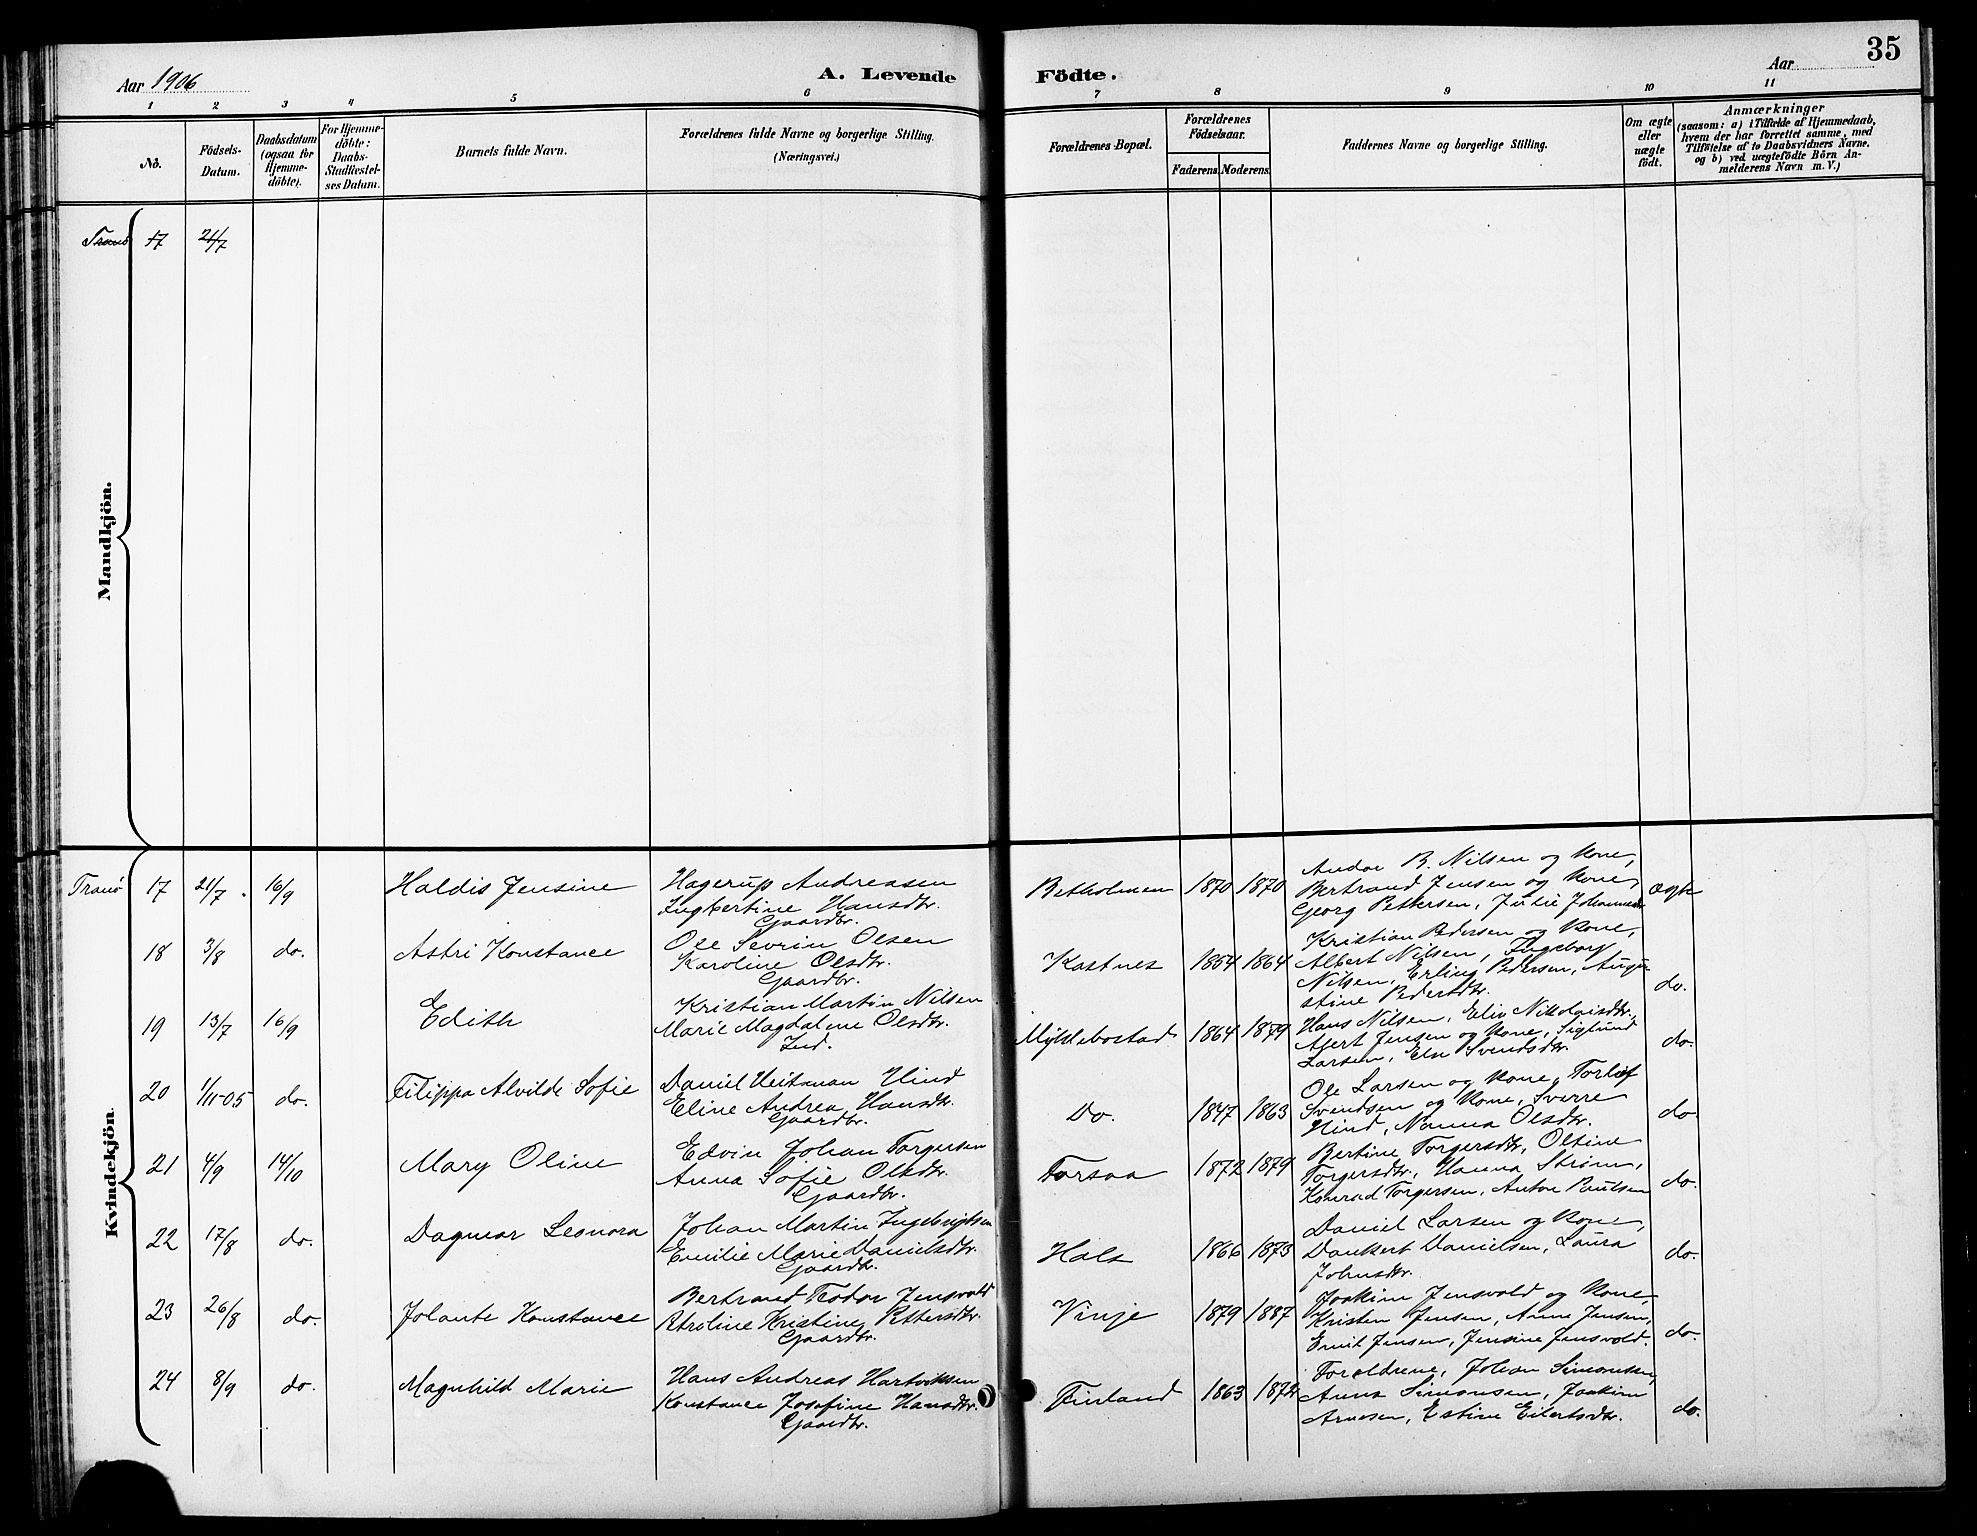 Aar 1906
A. Levende Födte.
Aar
35
1 2 3 4 5 6 7 8 9 10 11
No.
Födsels-Datum.
Daabsdatum (ogsaa for Hjemme-döbte).
For Hjemme-döbte: Daabs-Stadfæstel-ses Datum.
Barnets fulde Navn.
Forældrenes fulde Navne og borgerlige Stilling.
(Næringsvei.)
Forældrenes Bopæl.
Forældrenes Födselsaar.
Faderens. Moderens.
Faddernes Navne og borgerlige Stilling.
Om ægte eller uægte födt.
Anmærkninger
(saasom: a) i Tilfælde af Hjemmedaab,
hvem der har forrettet samme, med
Tilföielse af to Daabsvidners Navne.
og b) ved uægtefödte Börn An-
melderens Navn m. V.)
Tranö 17 21/7
Mandkjön.
Kvindekjön.
Tranö 17 21/7 16/9 Haldis Jensine
Hagerup Andreasen
Ingbertine Hansdtr.
Gaardbr.
Betholmen 1870 1870
Andor B. Nilsen og Kone,
Bertrand Jensen og Kone,
Georg Pettersen, Julie
ægte
18 3/8 do. Astri Konstance
Ole Sevrin Olsen
Karoline Olsdtr.
Gaardbr.
Kastnes 1854 1864
Kristian Pedersen og Kone,
Albert Nilsen, Ingeborg
Nilsen, Erling Pedersen, Augu-
stine Pedersdtr.
do.
19 13/7 16/9 Edith
Kristian Martin Nilsen
Marie Magdalene Olsdtr.
Ind.
Myklebostad 1864 1879
Hans Nilsen, Nikolaisdtr.,
Jensen og Kone,
Larsen, Svendsdtr.
do.
20 1/11-05 do. Filippa Alvilde Sofie
Daniel Heitman Hind
Eline Andrea Hansdtr.
Gaardbr.
Do. 1847 1863
Ole Larsen og Kone, Torleif
Svendsen og Kone, Sverre
Hind, Nanna Olsdtr.
do
21 4/9 14/10 Mary Oline
Edvin Johan Torgersen
Anna Sofie Olsdtr.
Gaardbr.
Forsaa 1872 1879
Bertine Torgersdtr., Oltine
Torgersdtr., Hanna Strøm,
Konrad Torgersen, Anton Paulsen
do.
22 17/8 do. Dagmar Leonora
Johan Martin Ingebrigtsen
Emilie Marie Danielsdtr.
Gaardbr.
Hals 1866 1873
Daniel Larsen og Kone,
Dankert Danielsen, Laura
Johnsdtr.
do.
23 26/8 do. Jolante Konstance
Bertrand Teodor Jensvold
Petroline Kristine Pettersdtr.
Gaardbr.
Vinje 1879 1887
Joakim Jensvold og Kone,
Kristen Jensen, Anne Jensen,
Emil Jensen, Jensine Jensvold.
do.
24 8/9 do. Magnhild Marie
Hans Andreas Hartviksen
Konstance Josefine Hansdtr.
Gaardbr.
Finland 1863 1872
Forældrene, Johan Simonsen,
Anna Simonsen, Joakim
Arnesen, Estine Eilertsdtr.
do.